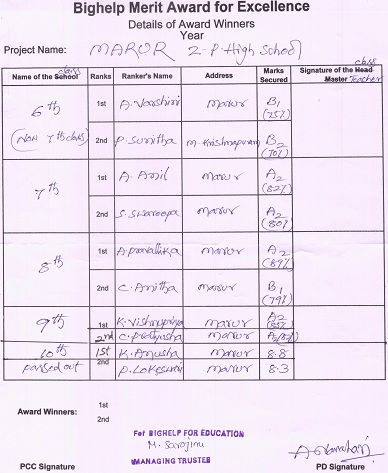 Bighelp Merit Award for Excellence
Details of Award Winners
Year
Project Name: MARUR Z.P. High School
Name of the School class Ranks Ranker's Name Address Marks Secured Signature of the Head Master class Teacher
6th 1st A. Varshini Marur B1 (75%)
(Now 7th class) 2nd P. Sunitha M. Krishnapuram B2 (70%)
7th 1st A. Anil Marur A2 (82%)
2nd S. Swaroopa Marur A2 (80%)
8th 1st A. pravallika Marur A2 (87%)
2nd C. Anitha Marur B1 (79%)
9th 1st K. Vishnupriya Marur A2 (85%)
2nd C. prathyusha Marur A2
10th 1st K. Anusha Marur 8.8
passed out 2nd P. Lokeswari Marur 8.3
Award Winners: 1st
2nd
For BIGHELP FOR EDUCATION
M. Sarojini
MANAGING TRUSTEE
PCC Signature PD Signature